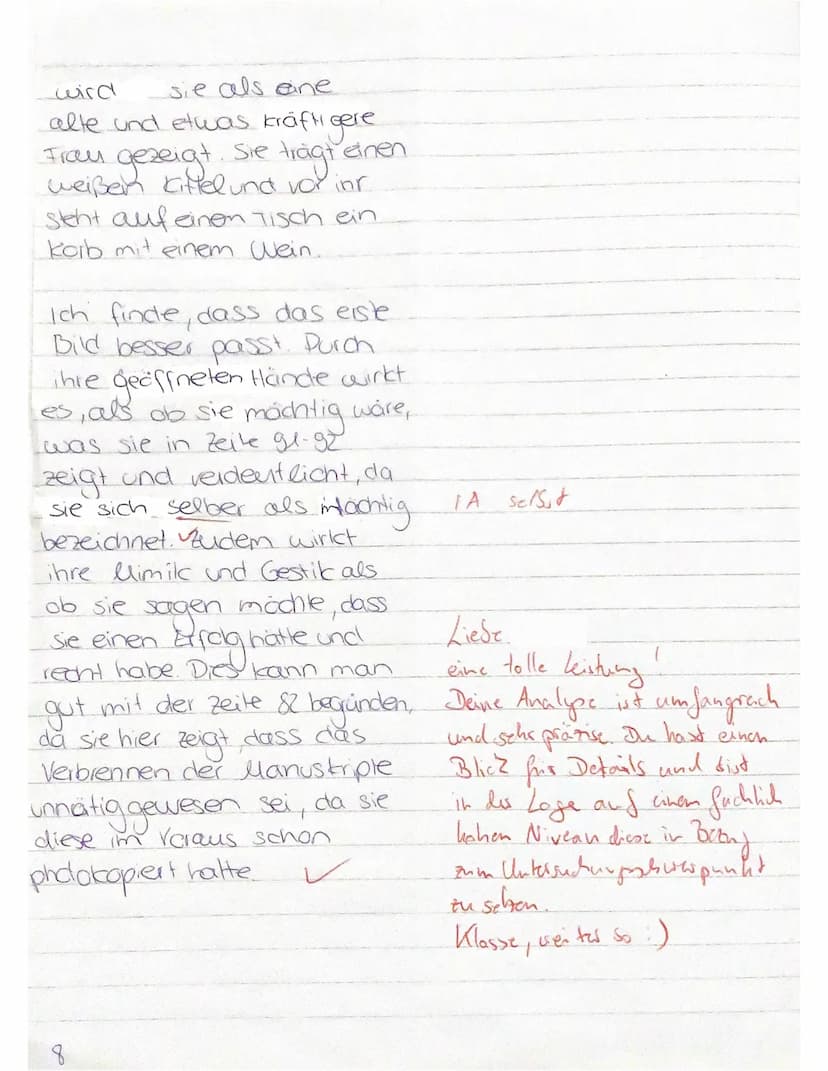 wird sie als eine
alte und etwas kräftigere
Frau gezeigt. Sie trägt einen
weißen Kittel und vor ihr
steht auf einen Tisch ein
Korb mit einem Wein.
Ich finde, dass das erste
Bild besser passt. Durch
ihre geöffneten Hände wirkt
es, als ob sie mächtig wäre,
was sie in Zeile 91-92
zeigt und verdeutlicht, da
sie sich selber als mächtig
bezeichnet. Zudem wirkt
ihre Mimik und Gestik als
ob sie sagen möchte, dass
sie einen Erfolg hätte und
recht habe. Dies kann man
gut mit der Zeile 82 begünden,
da sie hier zeigt, dass das
Verbrennen der Manuskripte
unnätig gewesen sei, da sie
diese im Voraus schon
photokopiert hatte.
8
1A selbst
Liebe
eine tolle Leistung!
Deine Analyse ist umfangreich
und sehr präzise. Du hast einen
Blick für Details und bist
in der Lage auf einem fachlich
hohen Niveau diese in Bezug
zum Untersuchungsschwerpunkt
zu setzen.
Klasse, weiter so :)